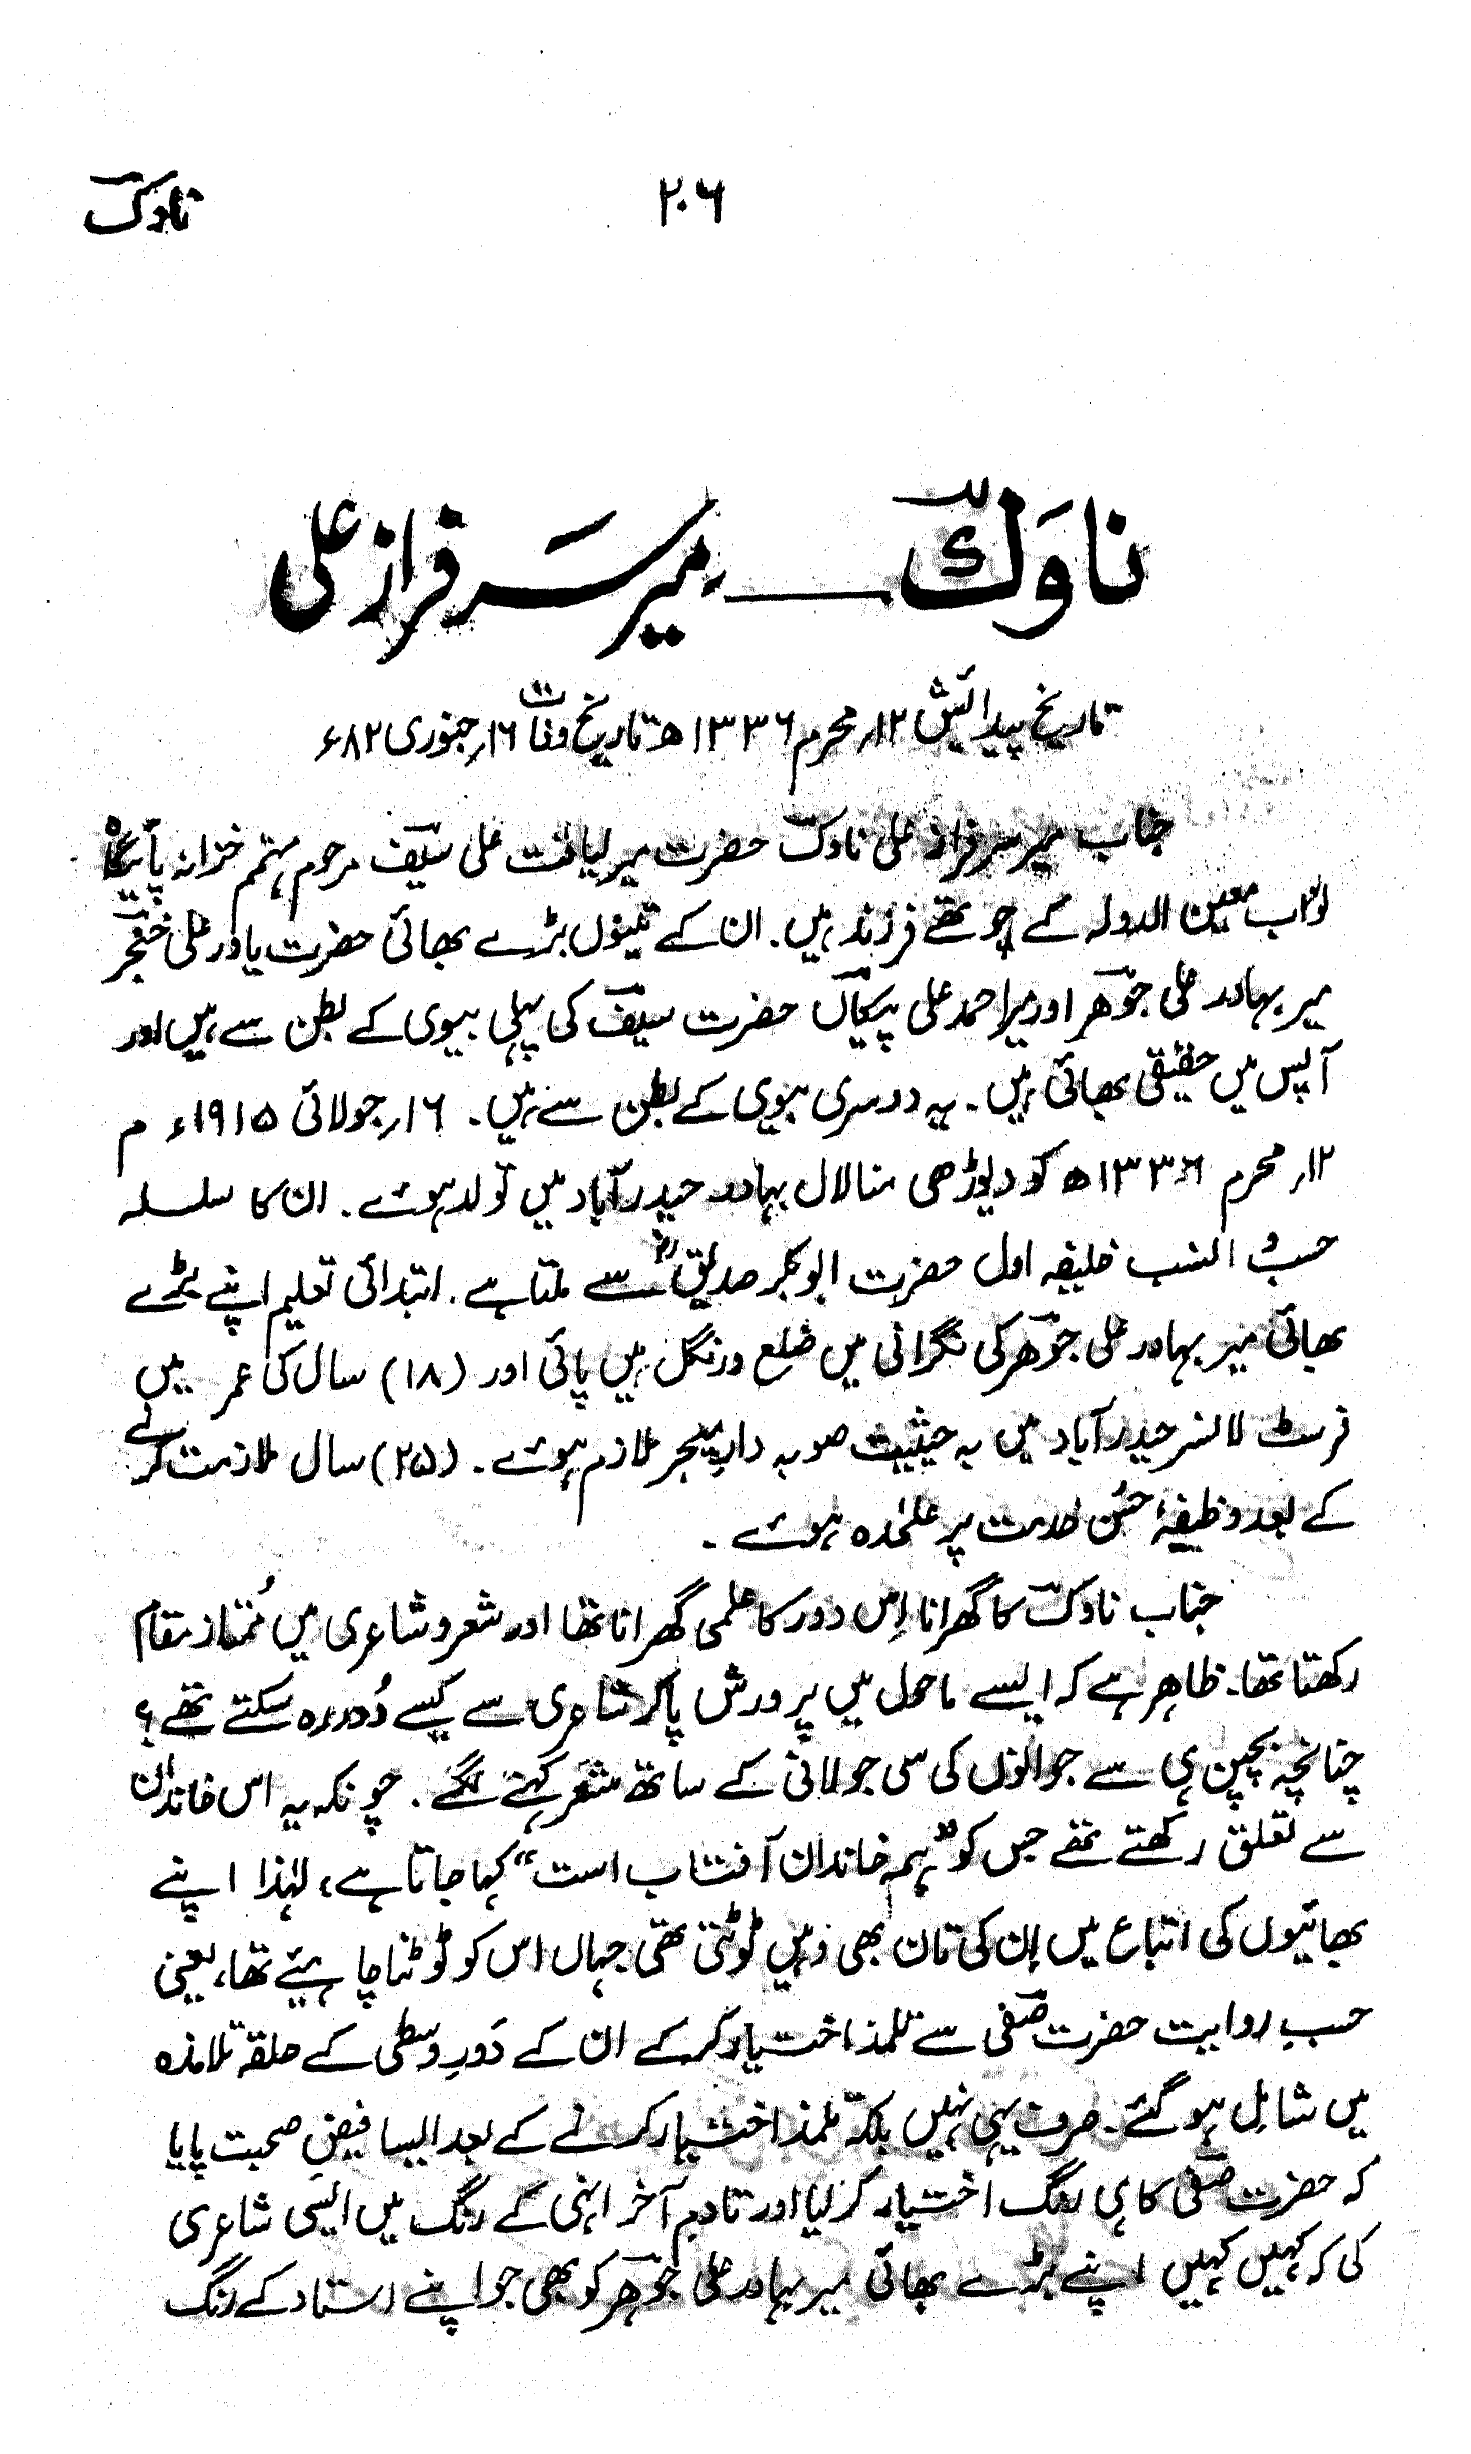 ناوکؔ
۲۰۶
ناوَکؔ ــــــ میر سَرفراز علی
تاریخ پیدائش ۱۲؍محرم ۱۳۳۶ھ تاریخ وفات ۱۶؍جنوری ۸۲ء
جناب میر سرفراز علی ناوکؔ حضرت میر لیاقت علی سیفؔ مرحوم مہتمم خزانہ پائیگاہ
نواب معین الدولہ کے چوتھے فرزند ہیں۔ ان کے تینوں بڑے بھائی حضرت یاور علی خنجرؔ
میر بہادر علی جوؔہر اور میر احمد علی پیکاںؔ حضرت سیفؔ کی پہلی بیوی کے بطن سے ہیں اور
آپس میں حقیقی بھائی ہیں۔ یہ دوسری بیوی کے بطن سے ہیں۔ ۱۶؍جولائی ۱۹۱۵ء م
۱۲؍ محرم ۱۳۳۶ھ کو دیوڑھی منالال بہادر حیدرآباد میں تولد ہوئے۔ ان کا سلسلہ
حسب و النسب خلیفہ اول حضرت ابوبکر صدیقؓ سے ملتا ہے۔ ابتدائی تعلیم اپنے بڑے
بھائی میر بہادر علی جوؔہر کی نگرانی میں ضلع ورنگل میں پائی اور (۱۸) سال کی عمر میں
فرسٹ لانسر حیدرآباد میں بہ حیثیت صوبہ دار میجر ملازم ہوئے۔ (۲۵) سال ملازمت کرنے
کے بعد وظیفۂ حُسن خدمت پر علٰحدہ ہوئے۔
جناب ناوکؔ کا گھرانا اِس دور کا علمی گھرانا تھا اور شعر و شاعری میں مُمتاز مقام
رکھتا تھا۔ ظاہر ہے کہ ایسے ماحول میں پرورش پا کر شاعری سے کیسے دُور رہ سکتے تھے؟
چنانچہ بچپن ہی سے جوانوں کی سی جولانی کے ساتھ شعر کہنے لگے۔ چونکہ یہ اس خاندان
سے تعلق رکھتے تھے جس کو ”ہمہ خاندان آفتاب است“ کہا جاتا ہے، لہٰذا اپنے
بھائیوں کی اتباع میں اِن کی تان بھی وہیں ٹوٹتی تھی جہاں اس کو ٹوٹنا چاہئیے تھا، یعنی
حسبِ روایت حضرت صفیؔ سے تلمذ اختیار کر کے ان کے دَورِ وسطی کے حلقہ تلامذہ
میں شامِل ہوگئے۔ صرف یہی نہیں بلکہ تلمذ اختیار کرنے کے بعد ایسا فیضِ صحبت پایا
کہ حضرت صفیؔ کا ہی رنگ اختیار کر لیا اور تادمِ آخر انہی کے رنگ میں ایسی شاعری
کی کہ کہیں کہیں اپنے بڑے بھائی میر بہادر علی جوؔہر کو بھی جو اپنے استاد کے رنگ